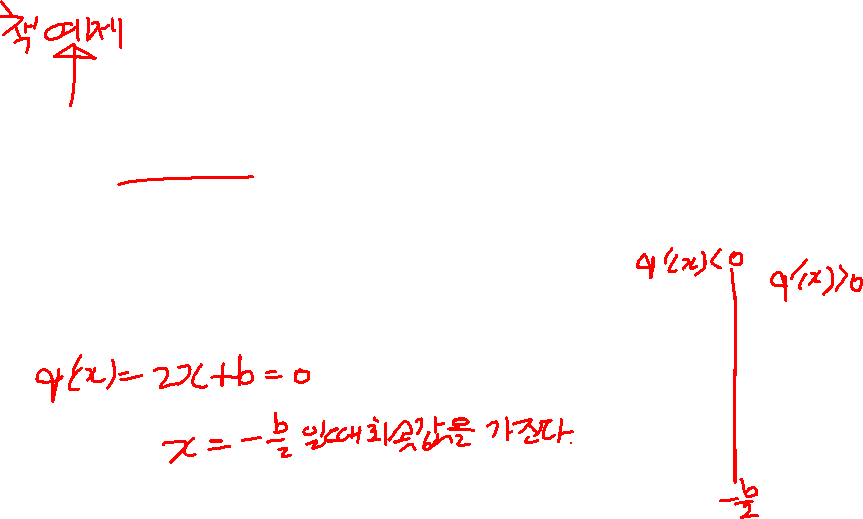 책 예제
φ'(x)<0
φ'(x)>0
φ'(x)=2x+b=0
x=-b/2 일때 최솟값을 가진다.
-b/2